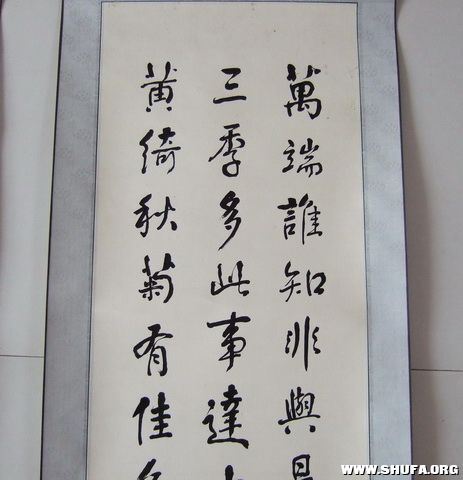 萬端誰知非與
三季多此事達
黃綺秋菊有佳
WWW.SHUFA.ORG